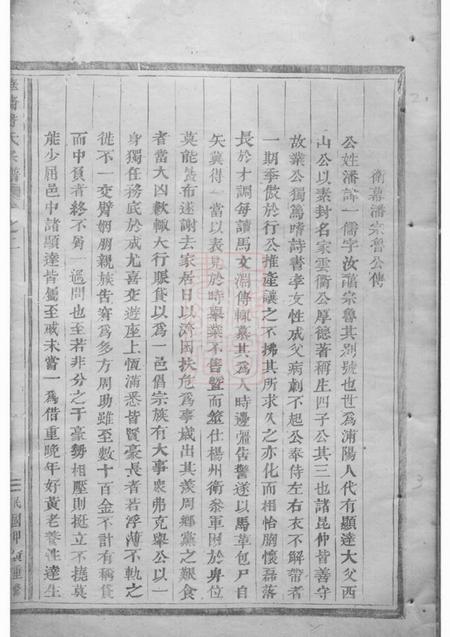 衛幕潘宗魯公傳
公姓潘諱一儒字汝醕宗魯其別號也世為浦陽人代有顯達大父西
山公以素封名家雲衢公厚德著稱生四子公其三也諸昆仲皆善守
故業公獨篤嗜詩書孝友性成父病劇不起公奉侍左右衣不解帶者
一期季倣於行公推產讓之不拂其所求久之亦化而相怡胸懷磊落
長於才調每讀馬文淵傳輒慕其為人時邊疆告警遂以馬革包尸自
矢冀得一當以表見於時舉業不售暨而筮仕楊州衛參軍困於卑位
莫能展布遂謝去家居日以濟困扶危為事歲出其羨周鄉黨之艱食
者當大凶歉輒大行賑貸以為一邑倡宗族有大事衆弗克舉公以一
身獨任務底於成尤喜交遊座上恆滿悉皆賢豪長者若浮薄不軌之
徙不一交臂姻朋親族告窘為多方周助雖至數十百金不計有稱貸
而中負者終不窮一過問也至若非分之干豪勢相壓則挺立不撓莫
能少屈邑中諸顯達皆屬至戚未嘗一為借重晚年好黃老養性達生
氏宗譜
卷之
民國甲寅重修